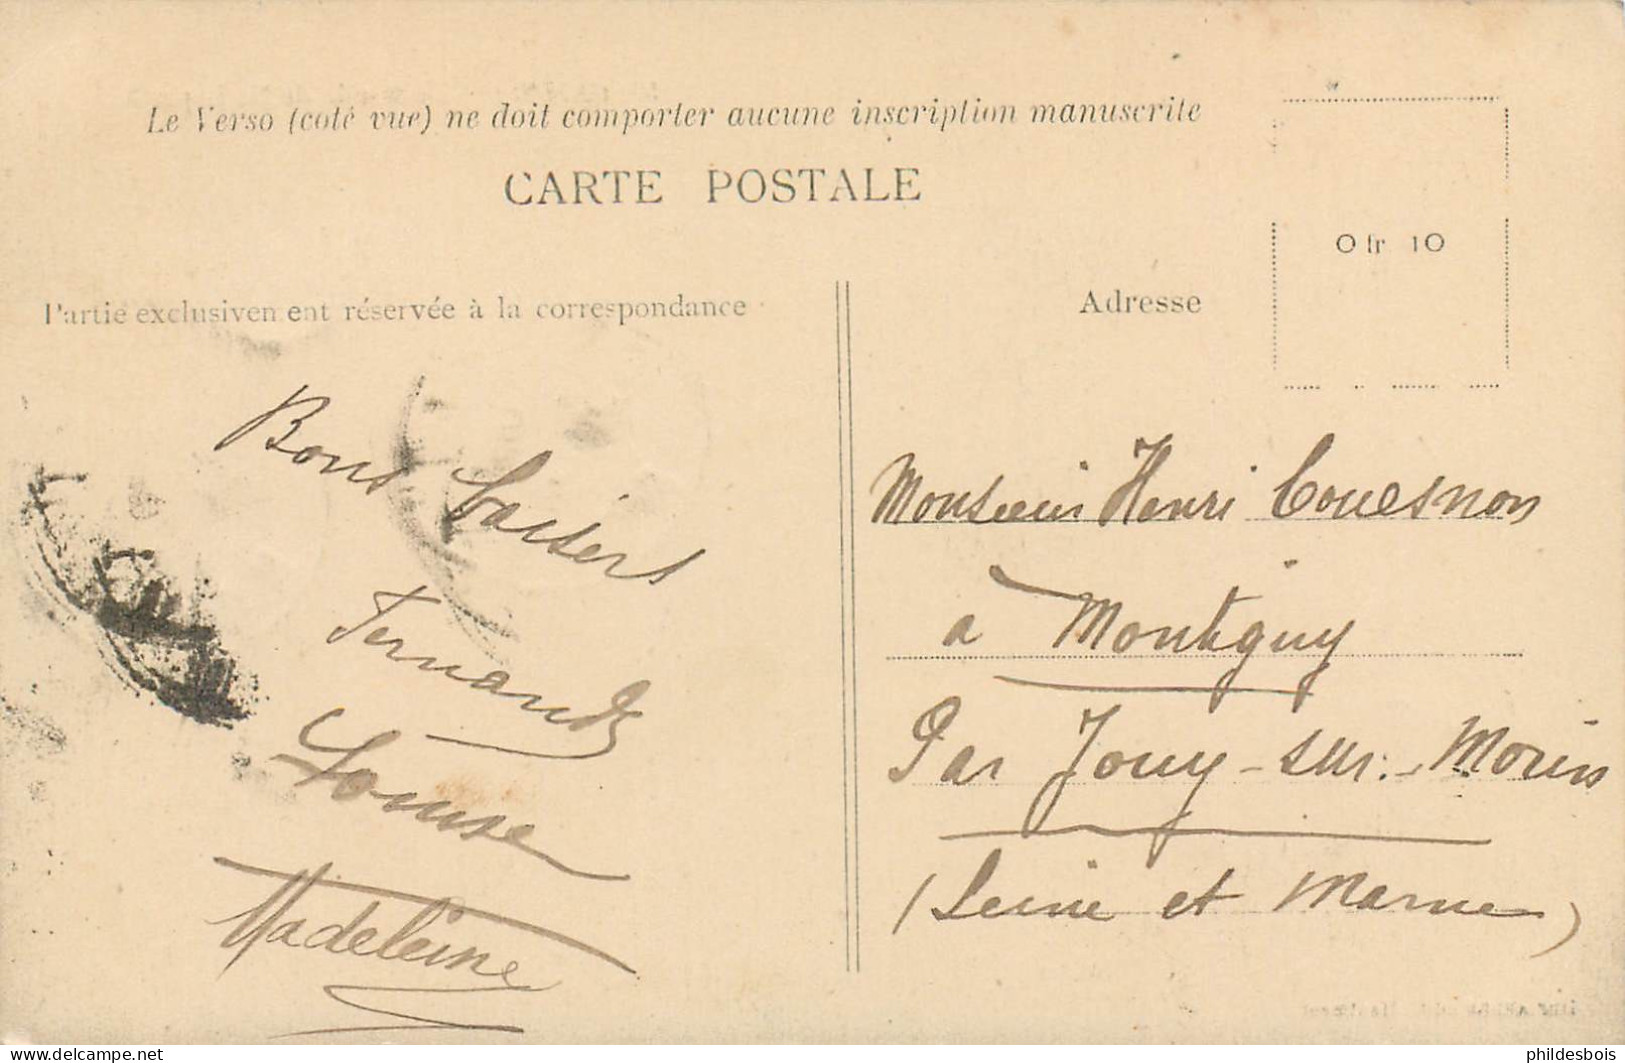 Le Verso (coté vue) ne doit comporter aucune inscription manuscrite
CARTE POSTALE
0 fr 10
Partie exclusivement réservée à la correspondance
Adresse
Bons baisers
Fernande
Louise
Madeleine
Monsieur Henri Couesnon
a Montigny
Par Jouy-sur-Morin
(Seine et Marne)
delcampe.net
phildesbois